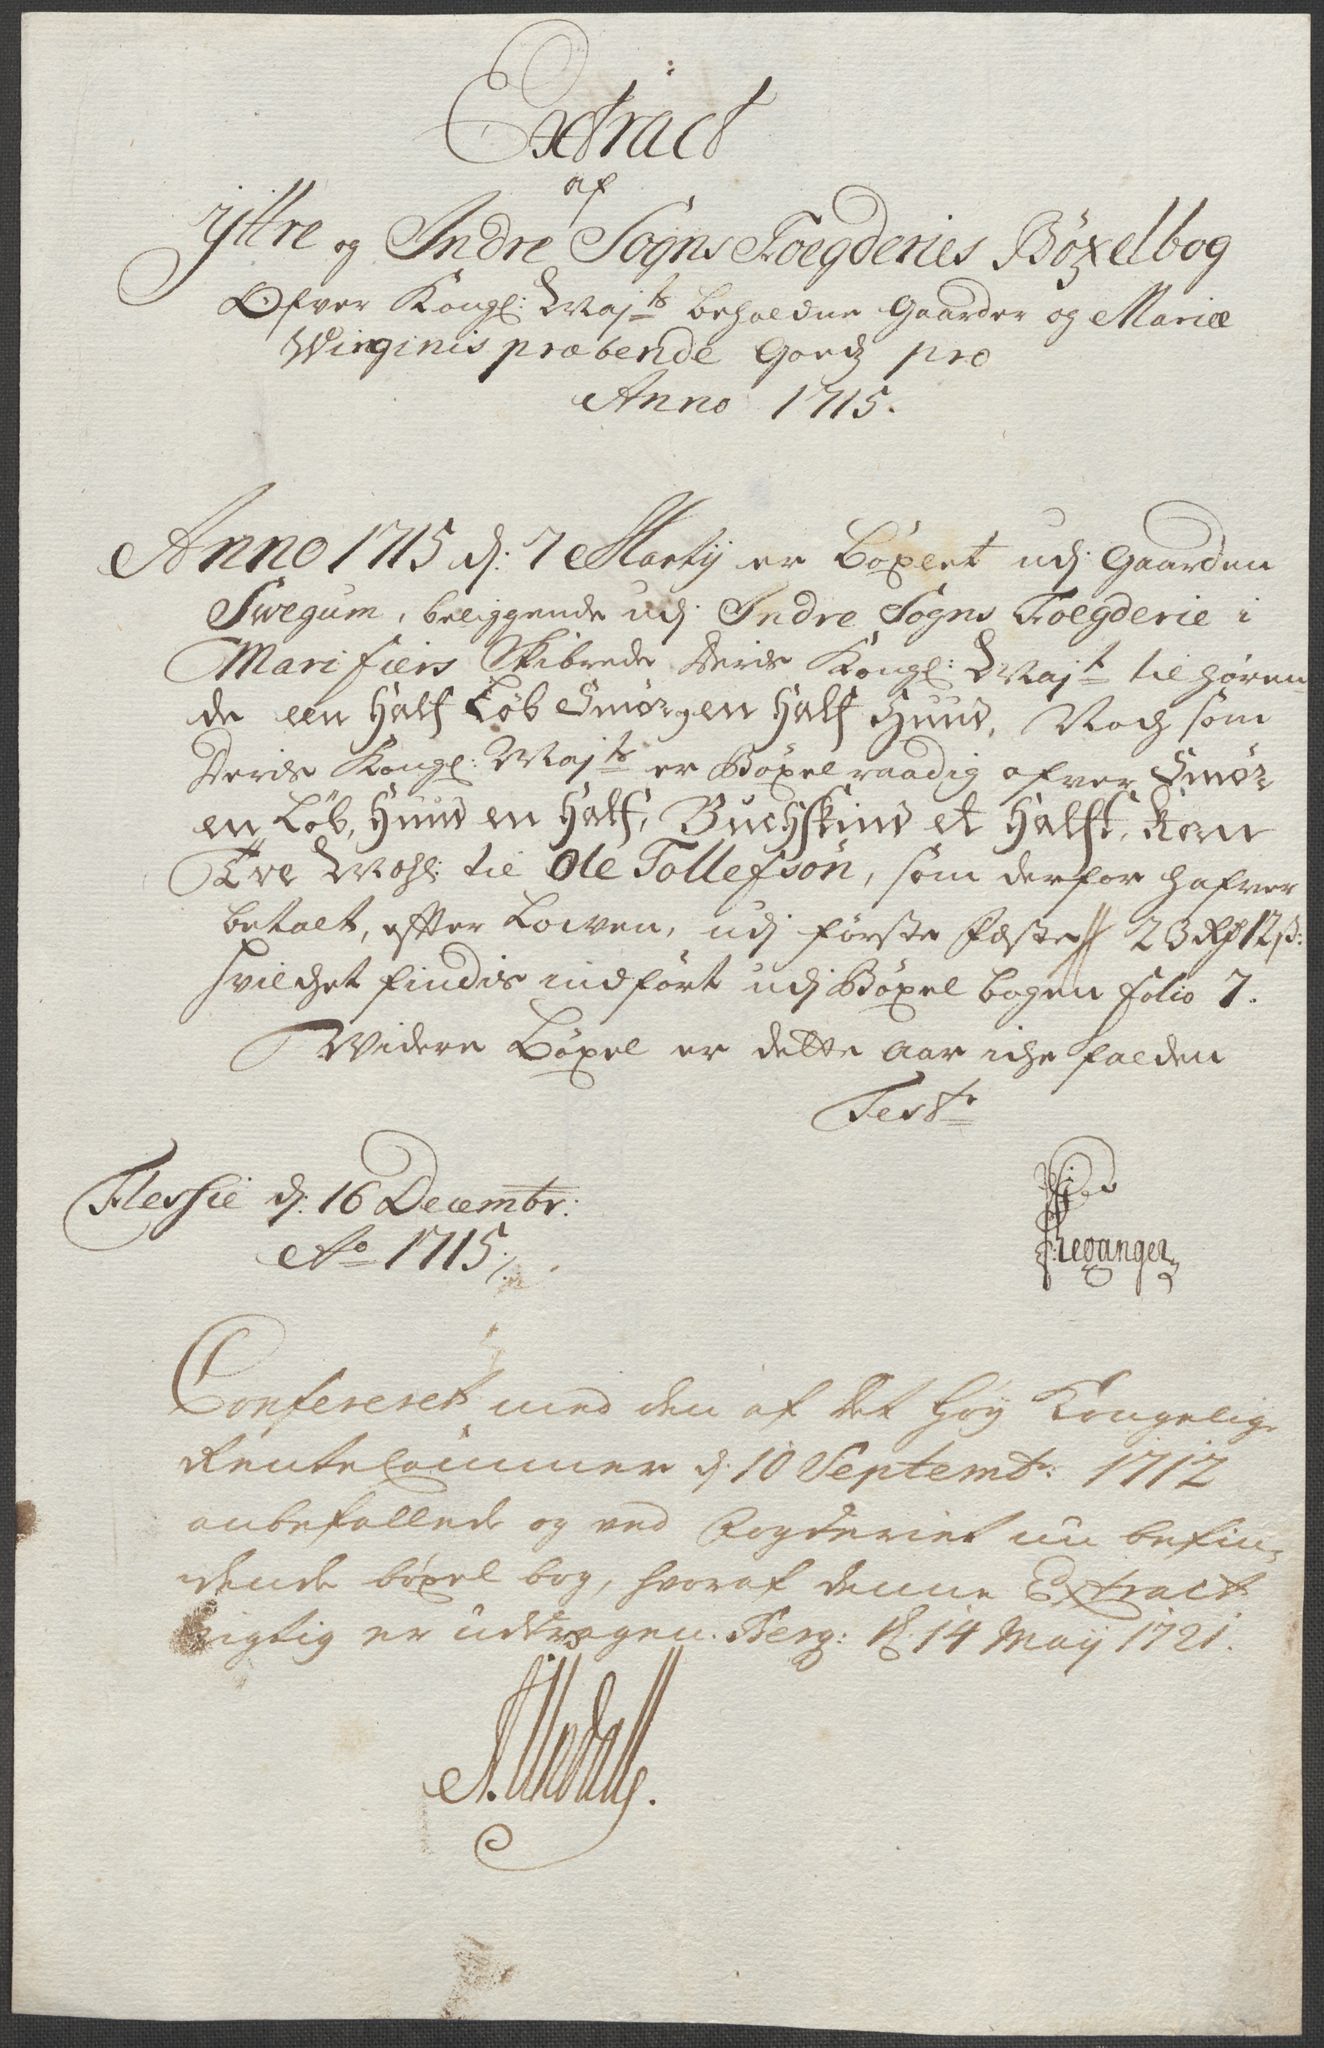 Extract
af
Yttre og Indre Sogns Foegderies Böxelbog
Ofver Kongl: Maj:ts beholdne Gaarder og Mariæ
Virginis præbende Goedz pro
Anno 1715.
Anno 1715 d: 7 Martij er Böxlet udj Gaarden
Svegum, beliggende udj Indre Sogns Foegderie i
Marifiers Skibrede Deris Kongl: Maj:t tilhören-
de een Half Löb Smör, en Half Huud, Noch som
Deris Kongl: Maj:ts er Böxelraadig ofver Smör
en Löb, Huud en Half, Buchskind et Halft, Korn
Tve Mæhl: til Ole Tollefsön, som derfor hafver
betalt, efter Lowen, udj förste fæste 23 Rd 12 s:
hvilchet findis indfört udj Böxel bogen folio 7.
Widere Böxel er dette Aar iche falden
Test:
Flesche d: 16 Decembr:
Ao 1715
Leganger
Confereret med den af det Höy Kongelig
Rentecammer d. 10 Septembr: 1712
anbefallede og ved Fogderiet nu befin-
dende böxel bog, hvoraf denne Extract
rigtig er uddragen. Berg: d. 14 Maij 1721.